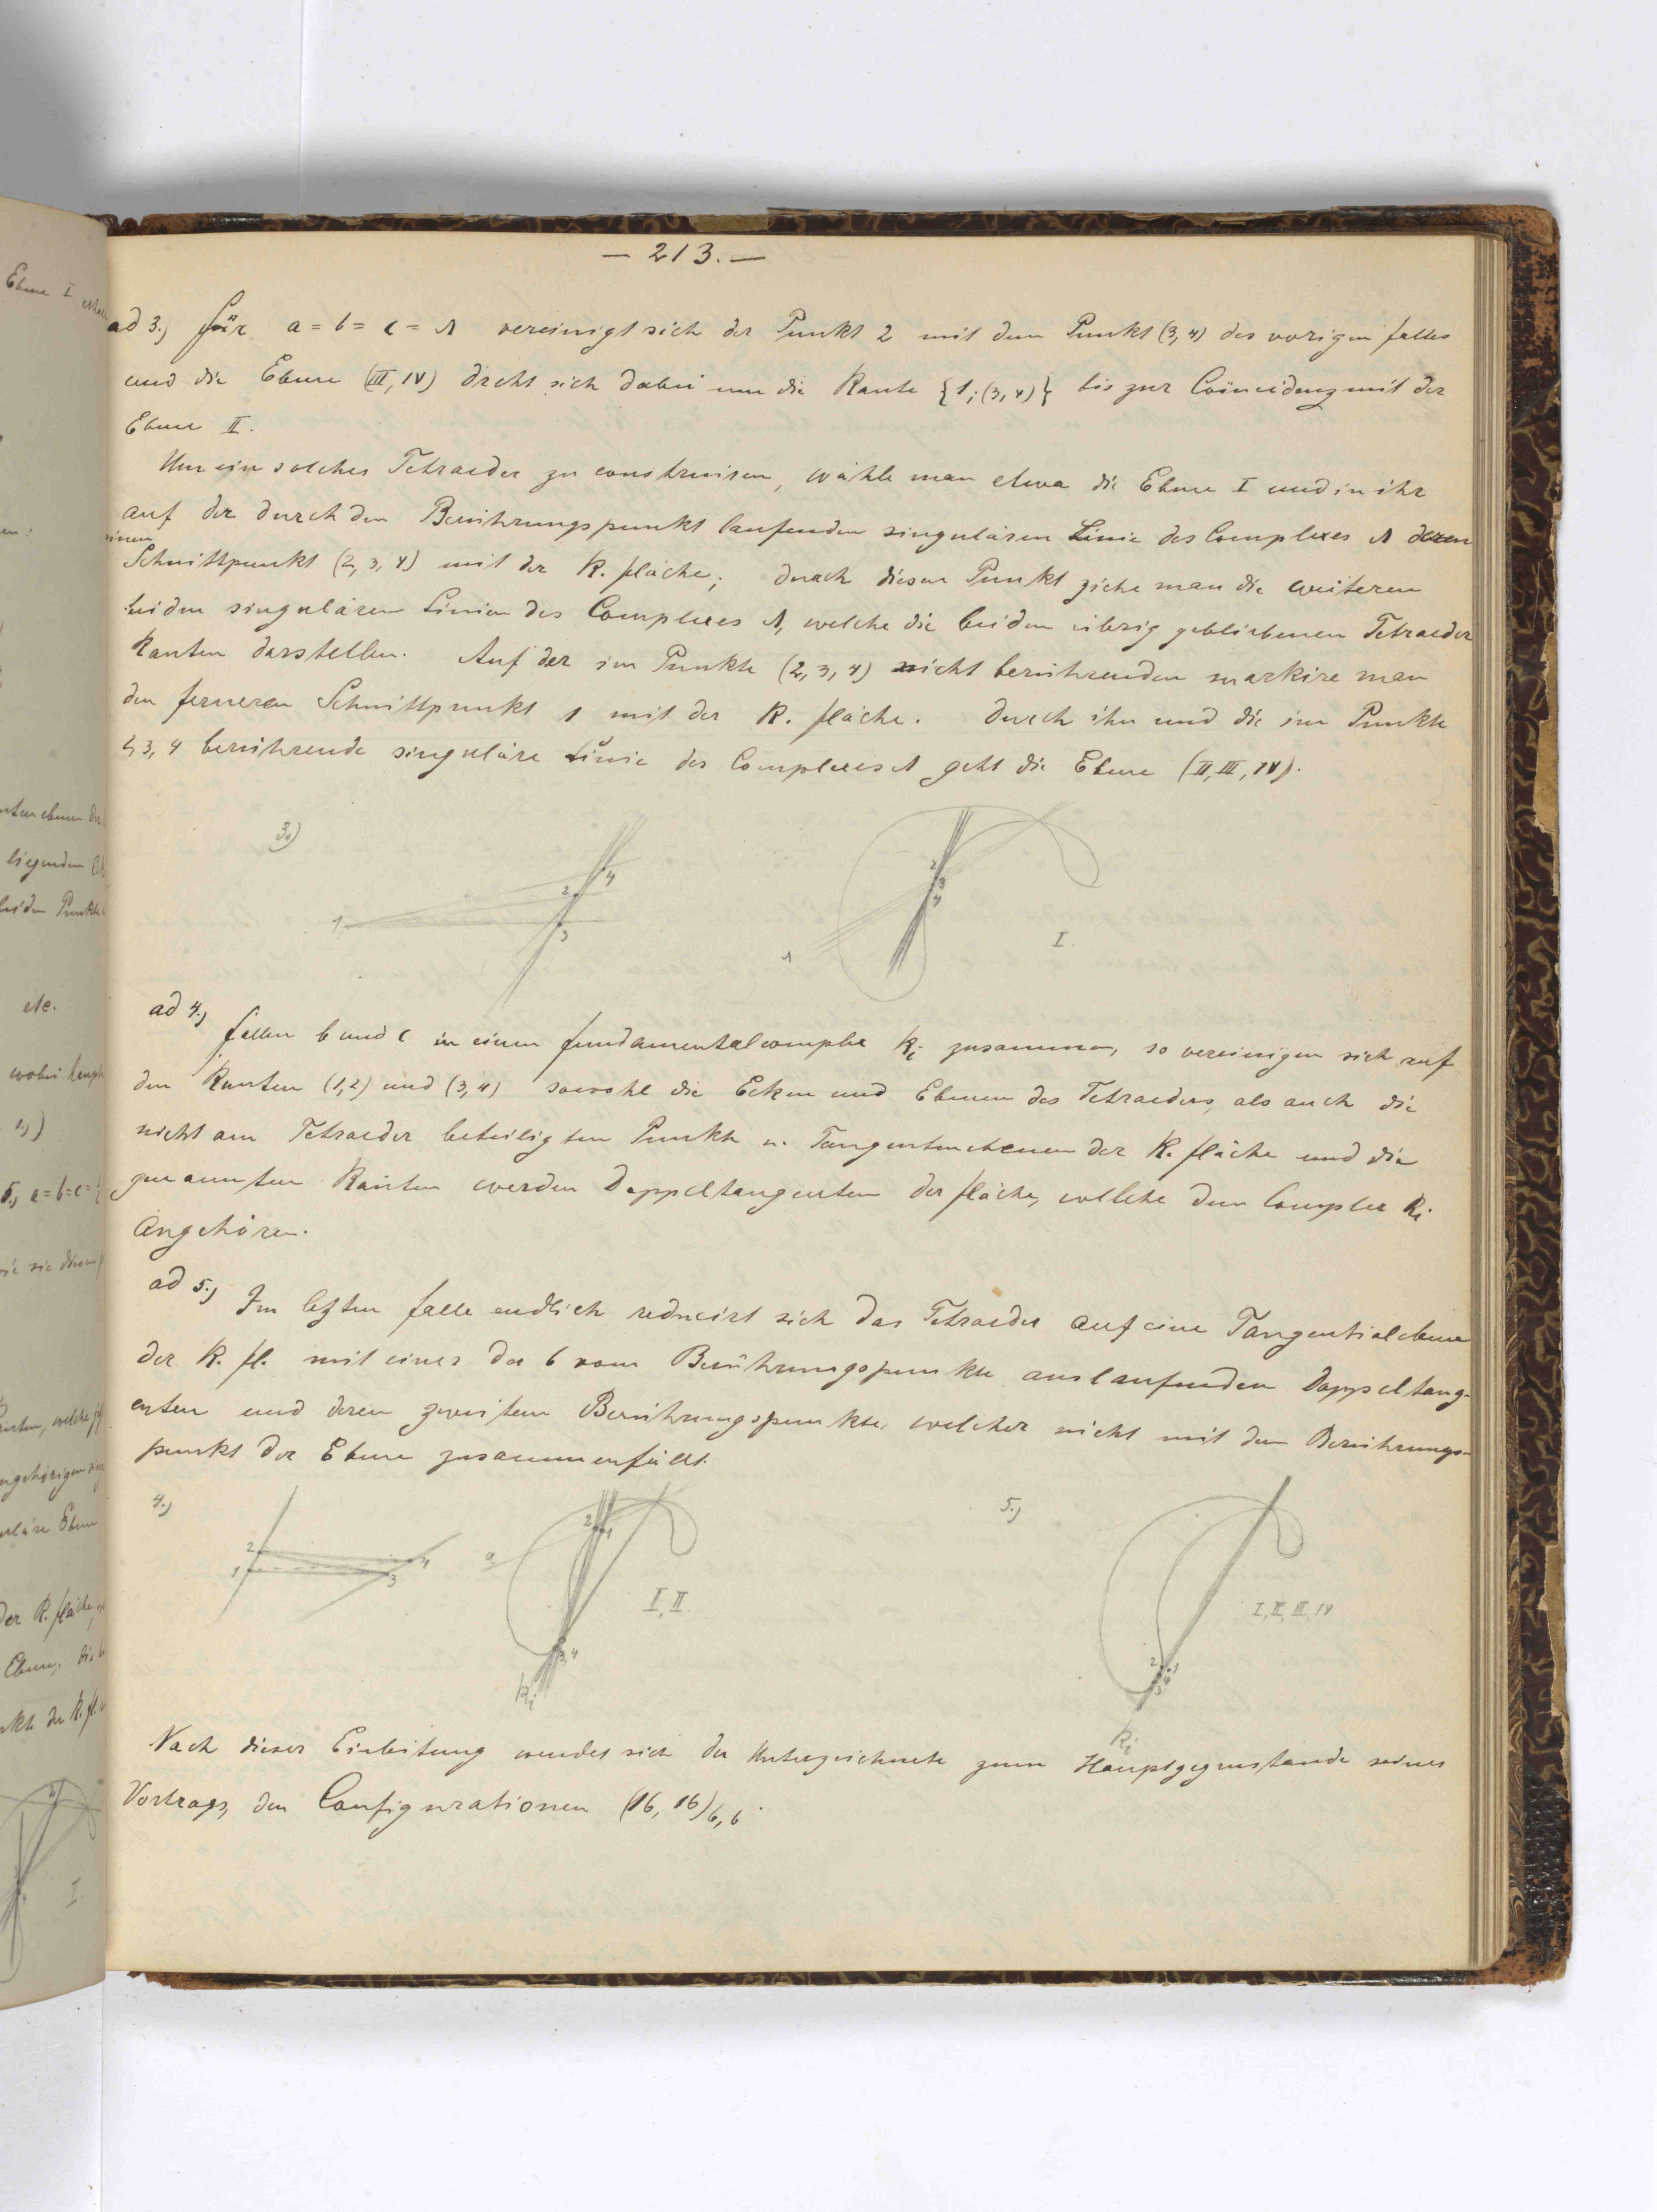 — 213. —
ad 3.) Für a = b = c = Λ vereinigt sich der Punkt 2 mit dem Punkt (3, 4) des vorigen Falles
und die Ebene (III, IV) dreht sich dabei um die Kante {1; (3, 4)} bis zur Coincidenz mit der
Ebene II.
Um ein solches Tetraeder zu construiren, wähle man etwa die Ebene I und in ihr
auf der durch den Berührungspunkt laufenden singulären Linie des Complexes Λ deren
einen
Schnittpunkt (2, 3, 4) mit der K. fläche; durch diesen Punkt ziehe man die weiteren
beiden singulären Linien des Complexes Λ, welche die beiden übrig gebliebenen Tetraeder
Kanten darstellen. Auf der im Punkte (2, 3, 4) nicht berührenden markire man
den ferneren Schnittpunkt 1 mit der K. fläche. Durch ihn und die im Punkte
2, 3, 4 berührende singuläre Linie des Complexes Λ geht die Ebene (II, III, IV).
3.)
1
2
4
3
2
3
4
Λ
I.
ad 4.)
Fallen b und c in einen Fundamentalcomplex Ki zusammen, so vereinigen sich auf
den Kanten (1, 2) und (3, 4) sowohl die Ecken und Ebenen des Tetraeders, als auch die
nicht am Tetraeder beteiligten Punkte u. Tangentenebenen der K. fläche und die
genannten Kanten werden Doppeltangenten der Fläche, welche dem Complex Ki
angehören.
ad 5.) Im letzten Falle endlich reducirt sich das Tetraeder auf eine Tangentialebene
der K. fl. mit einer der 6 vom Berührungspunkte auslaufenden Doppeltang-
enten und deren zweitem Berührungspunkte, welcher nicht mit dem Berührungs-
punkt der Ebene zusammenfällt.
4.)
2
1
4
3
a
2
1
3, 4
Ki
I, II.
5.)
I, II, III, IV
2
1
3
4
Ki
Nach dieser Einleitung wendet sich der Unterzeichnete zum Hauptgegenstande seines
Vortrags, den Configurationen (16, 16)6,6.